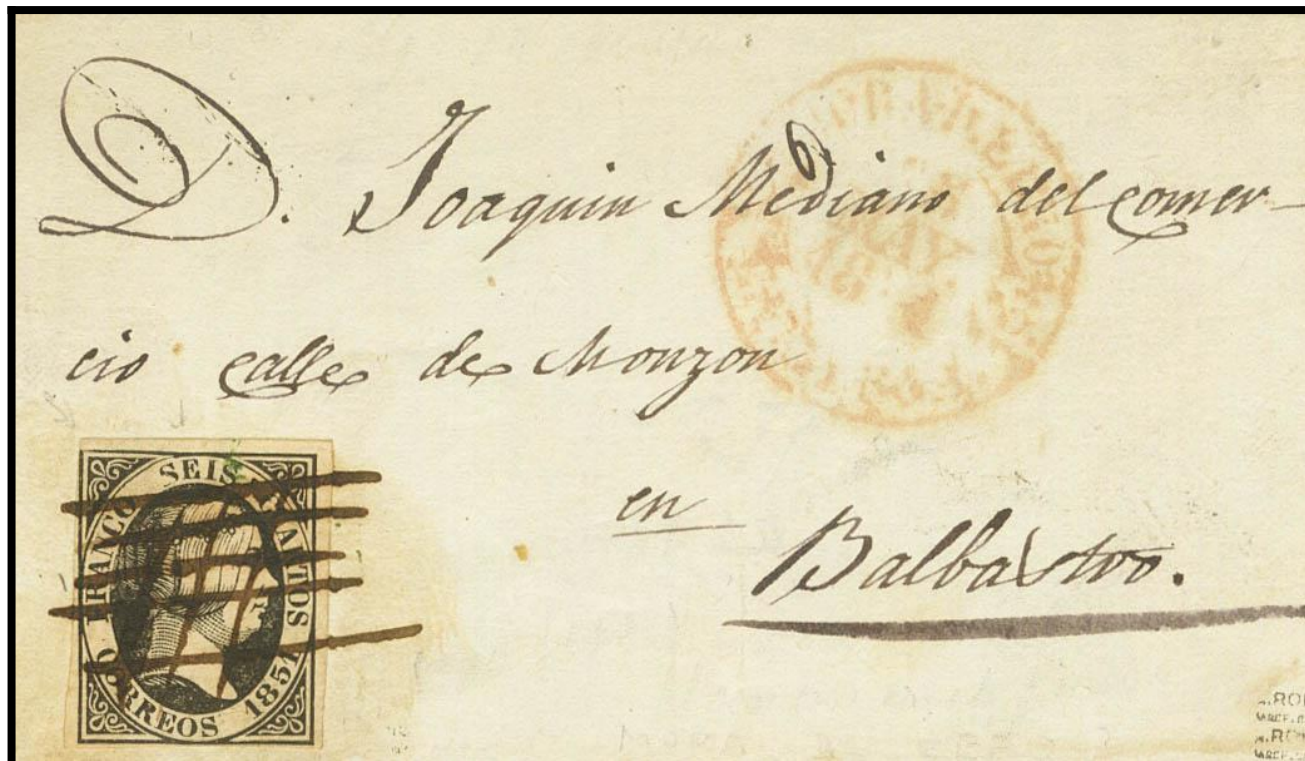 D. Joaquin Mediano del comer-
cio calle de Monzon
en
Balbastro.
FRANCO SEIS
CORREOS 1851
MAY